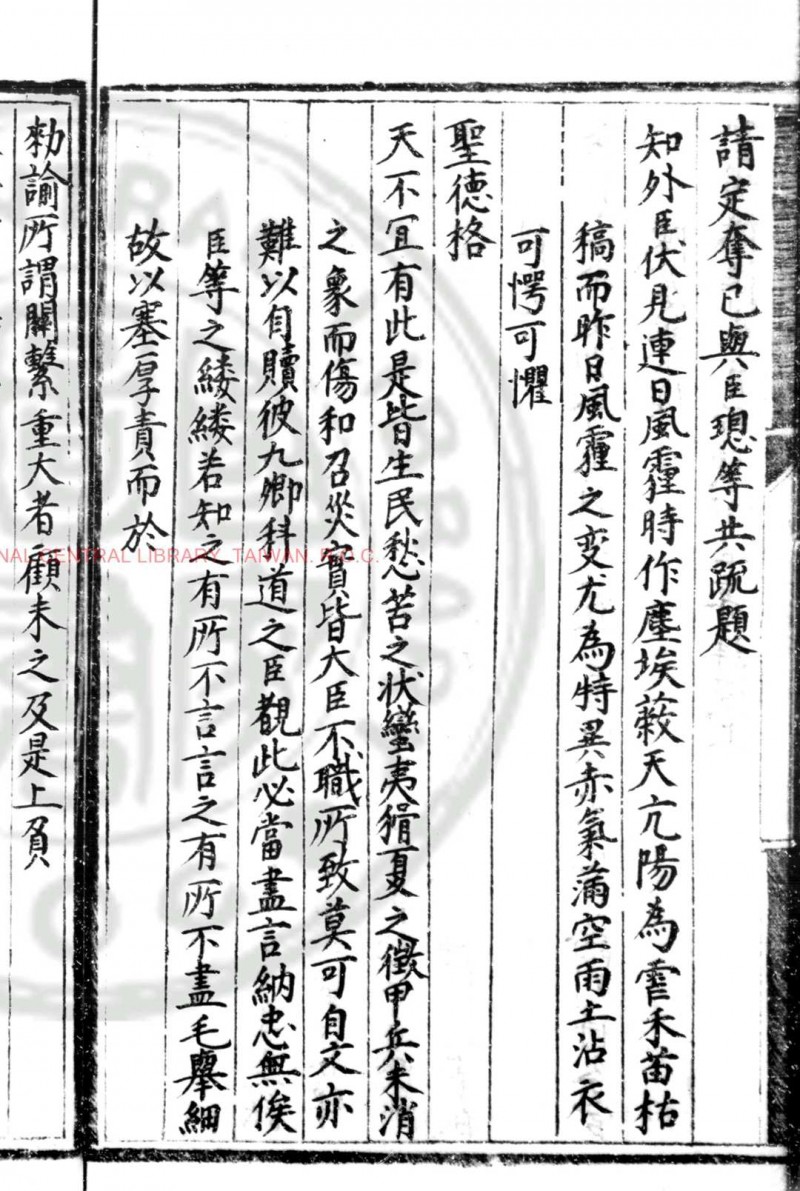 請定奪已與臣璁等共疏題
知外臣伏見連日風霾時作塵埃蔽天亢陽為雩禾苗枯
稿而昨日風霾之变尤為特異赤氣滿空雨土沾衣
可愕可懼
聖德格
天不宜有此是皆生民愁苦之状蠻夷猾夏之徵甲兵未消
之象而傷和召災實皆大臣不職所致莫可自文亦
難以自贖彼九卿科道之臣覩此必當盡言納忠無俟
臣等之縷縷若知之有所不言言之有所不盡毛舉細
故以塞厚責而於
勑諭所謂關繫重大者顧未之及是上負
NAL CENTRAL LIBRARY, TAIWAN, R.O.C.